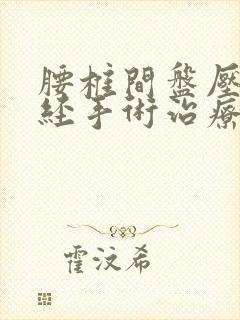 腰柱間盤壓
經手術治療
霍汶希